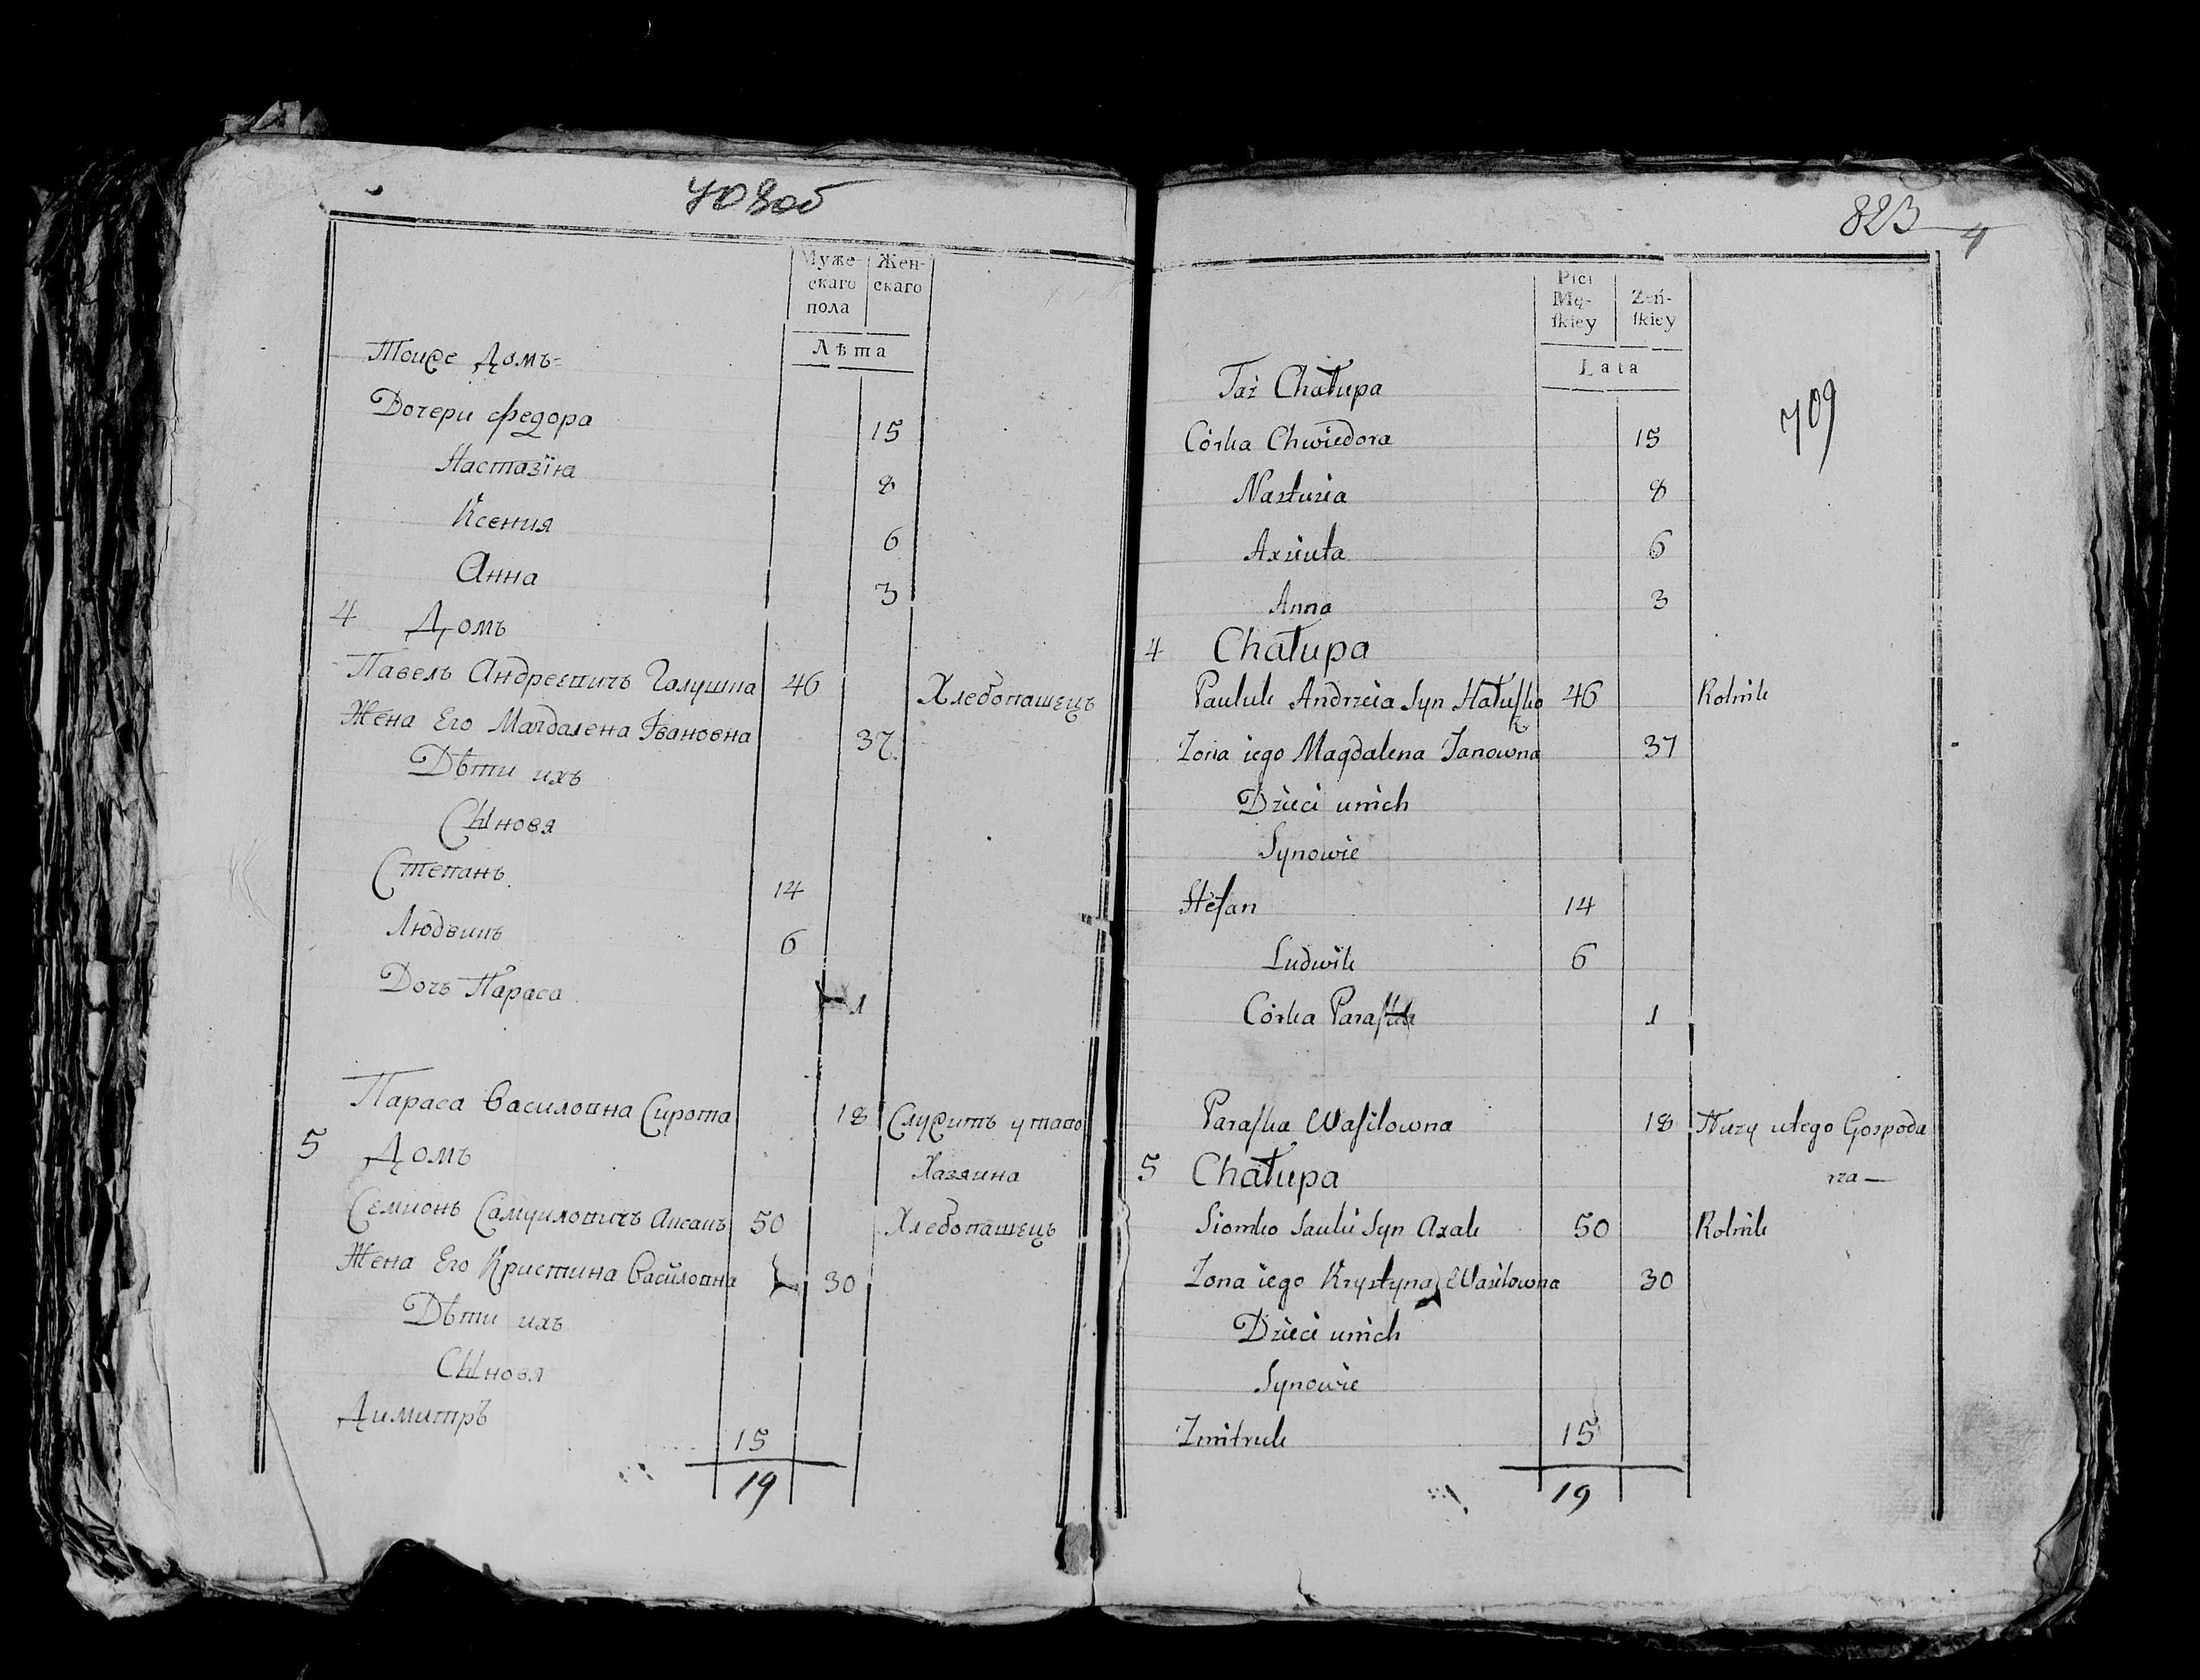 708об
Муже-
скаго
пола
Жен-
скаго
Лѣта
Тойже Домъ
Дочери Федора 15
Настазїя 8
Ксения 6
Анна 3
4 Домъ
Павелъ Андреевичъ Галушка 46 Хлебопашецъ
Жена Его Магдалена Ивановна 37
Дѣти ихъ
Сыновя
Степанъ 14
Людвикъ 6
Дочь Параса 1
Параса Василовна Сирота 18 Служитъ у таго
Хазяина
5 Домъ
Семионъ Самуиловичъ Аксакъ 50 Хлебопашецъ
Жена Его Кристина Василовна 30
Дѣти ихъ
Сыновя
Димитръ 15
19
823
4
Płci
Mę-
ſkiey
Żeń-
ſkiey
Lata
709
Taż Chałupa
Córka Chwiedora 15
Nastusia 8
Axiuta 6
Anna 3
4 Chałupa
Pauluk Andrzeia Syn Hałuſzko 46 Rolnik
Zona iego Magdalena Janowna 37
Dzieci u nich
Synowie
Stefan 14
Ludwik 6
Córka Paraſka 1
Paraſka Waſilowna 18 Służy u tego Gospoda
rza —
5 Chałupa
Siomko Saulu Syn Axak 50 Rolnik
Zona iego Krystyna Wasilowna 30
Dzieci u nich
Synowie
Zmitruk 15
19